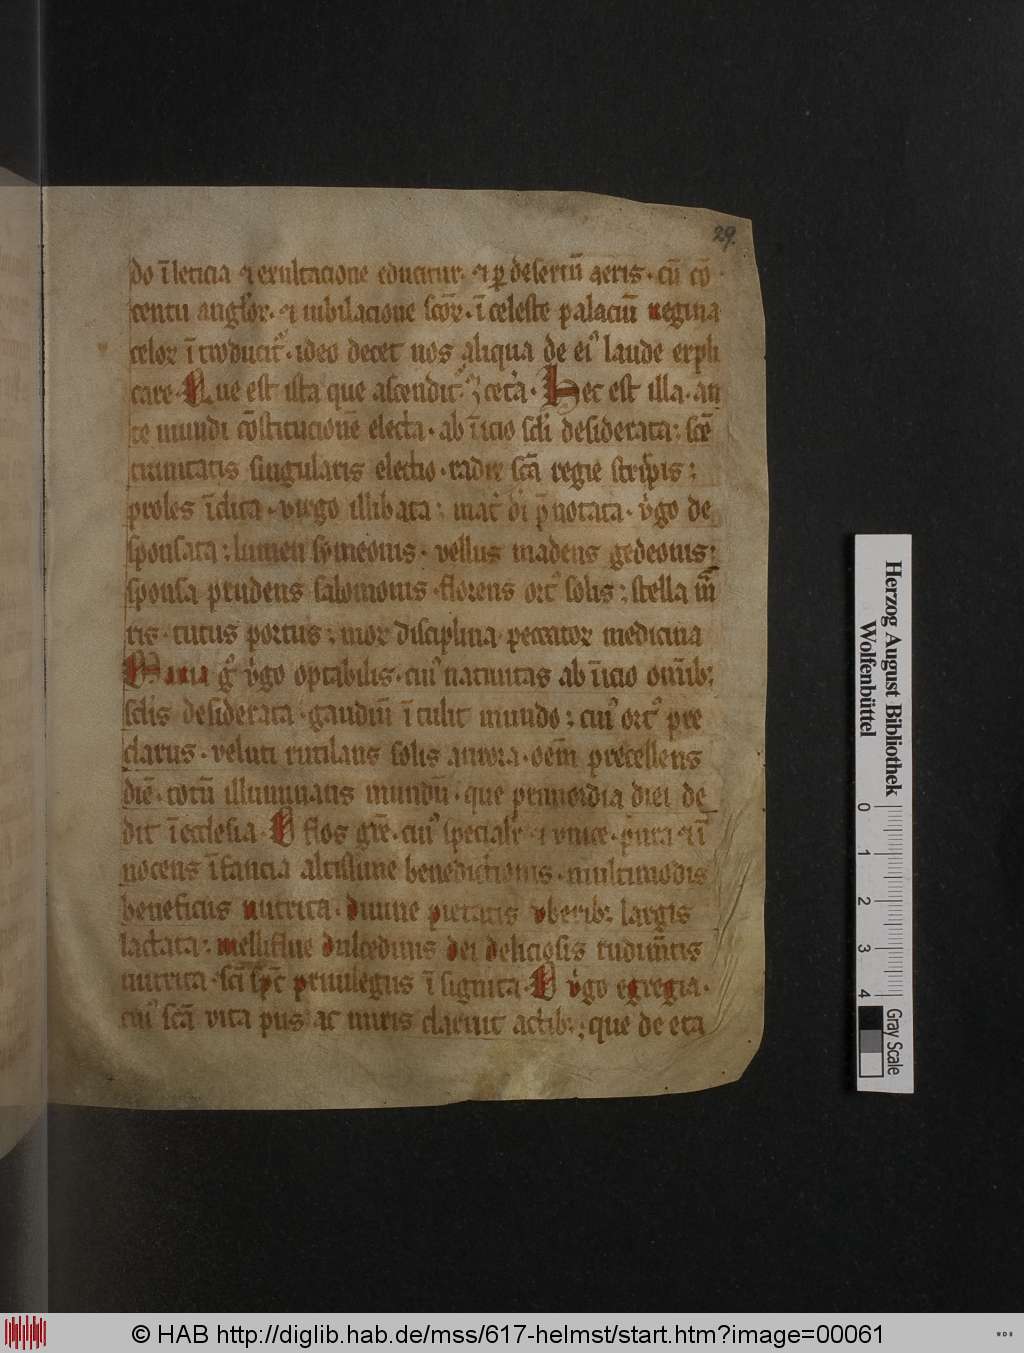 29.
do ī leticia ⁊ exultacione educitur. ⁊ ꝑ desertū aeris. cū cō
centu anglor̄. ⁊ iubilacione scōr. ī celeste palaciū regina
celor ī troducit᷑. ideo decet nos aliqua de ei᷒ laude expli
care. Que est ista que ascendit. ⁊ cetͣ. Hec est illa. an
te mundi cōstitucionē electa. ab īicio scli desiderata: scē
trinitatis singularis electio. radix scā regie stirpis:
proles īclita. virgo illibata: mat̉ di p̄notata. v̉go de
sponsata: lumen symeonis. vellus madens gedeonis:
sponsa prudens salomonis. florens ort᷒ solis: stella m̄
ris. tutus portus: mor disciplina. peccator medicina
Maria gͦ v̉go optabilis. cui᷒ natiuitas ab īicio omīb;
sclis desiderata. gaudiū ī tulit mundo: cui᷒ ort᷒ pre
clarus. veluti rutilans solis aurora. oēm precellens
diē. totū illuminatis mundū. que primordia diei de
dit ī ecclesia. O flos grē. cui᷒ specialr ⁊ vnice. pura ⁊ ī
nocens īfancia altissime benedictionis. multimodis
beneficiis nutrita. diuine pietatis vberib; largis
lactata: melliflue dulcedinis dei deliciosis rudimētis
nutrita. sci spc priuilegiis ī signita. O v̉go egregia.
cui᷒ scā vita piis ac miris claruit actib;: que de eta
Herzog August Bibliothek
Wolfenbüttel
0 1 2 3 4
Gray Scale
© HAB http://diglib.hab.de/mss/617-helmst/start.htm?image=00061